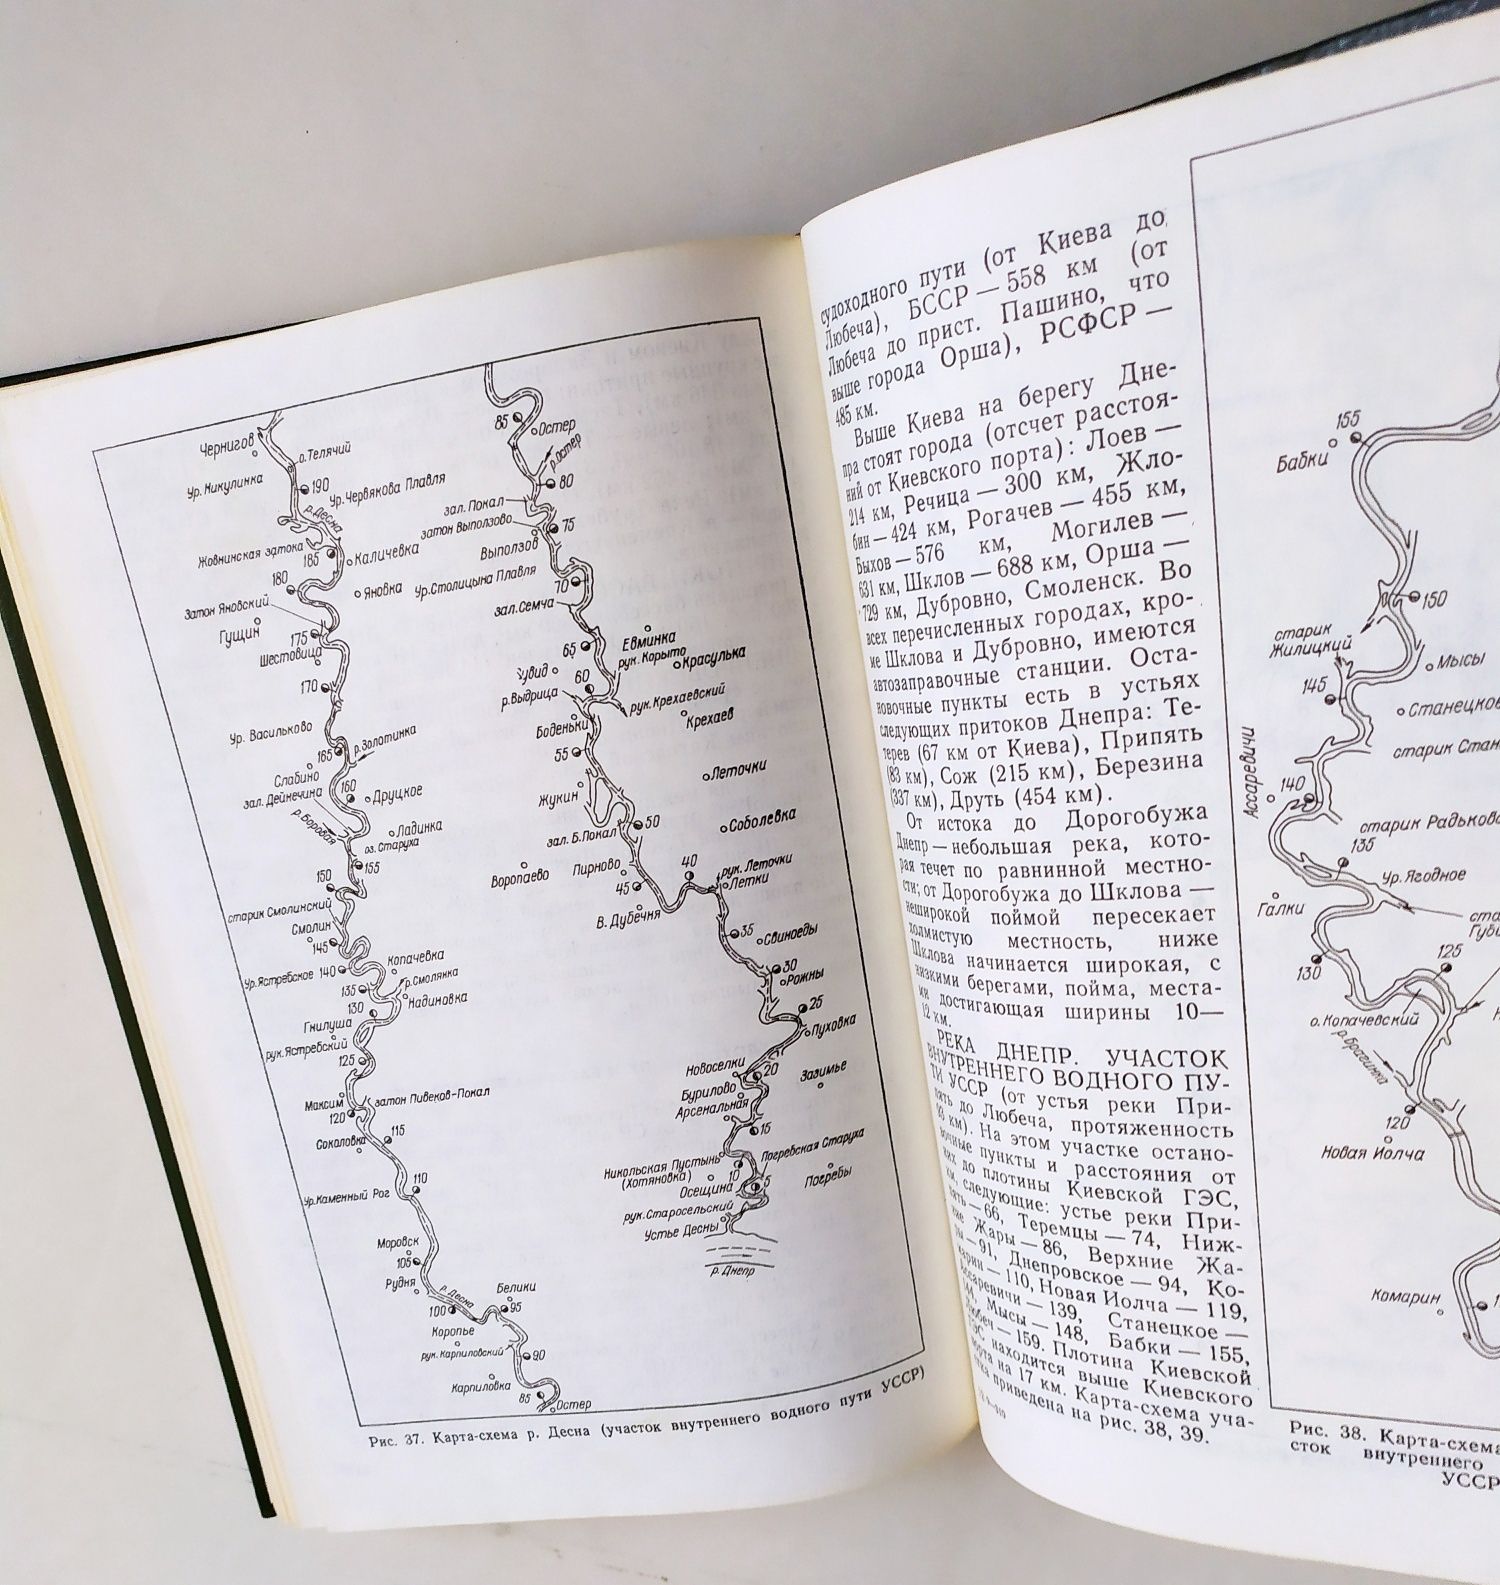 Чернигов
о. Телячий
Ур. Никулинка
190
Ур. Червякова Плавля
р. Десна
Жовнинская затока
185
Каличевка
180
Яновка
Затон Яновский
Гущин
175
Шестовица
170
Ур. Васильково
165
р. Золотинка
Слабино
зал. Дейнечина
160
Друцкое
р. Боровая
Ладинка
оз. Старуха
155
150
старик Смолинский
Смолин
145
Копачевка
Ур. Ястребское
140
р. Смолянка
135
Надиновка
130
Гнилуша
рук. Ястребский
125
Максим
затон Пивеков-Покал
120
Соколовка
115
110
Ур. Каменный Рог
Моровск
105
Рудня
р. Десна
Белики
100
95
Коропье
рук. Карпиловский
90
Карпиловка
85
Остер
85
Остер
р. Остер
80
зал. Покал
затон Выползово
75
Выползов
Ур. Столицына Плавля
70
зал. Семча
65
Евминка
рук. Корыто
Красулька
60
р. Выдрица
рук. Крехаевский
Крехаев
Боденьки
55
Леточки
Жукин
50
Соболевка
зал. Б. Покал
Воропаево
Пирново
40
рук. Леточки
Летки
45
В. Дубечня
35
Свиноеды
30
Рожны
25
Пуховка
Новоселки
20
Зазимье
Бурилово
Арсенальная
15
Погребская Старуха
Никольская Пустынь
(Хотяновка)
10
Погребы
Осещина
5
рук. Старосельский
Устье Десны
р. Днепр
Рис. 37. Карта-схема р. Десна (участок внутреннего водного пути УССР)
судоходного пути (от Киева до
Любеча), БССР — 558 км (от
Любеча до прист. Пашино, что
выше города Орша), РСФСР —
485 км.
Выше Киева на берегу Дне-
пра стоят города (отсчет расстоя-
ний от Киевского порта): Лоев —
214 км, Речица — 300 км, Жло-
бин — 424 км, Рогачев — 455 км,
Быхов — 576 км, Могилев —
631 км, Шклов — 688 км, Орша —
729 км, Дубровно, Смоленск. Во
всех перечисленных городах, кро-
ме Шклова и Дубровно, имеются
автозаправочные станции. Оста-
новочные пункты есть в устьях
следующих притоков Днепра: Те-
терев (67 км от Киева), Припять
(83 км), Сож (215 км), Березина
(337 км), Друть (454 км).
От истока до Дорогобужа
Днепр — небольшая река, кото-
рая течет по равнинной местно-
сти; от Дорогобужа до Шклова —
неширокой поймой пересекает
холмистую местность, ниже
Шклова начинается широкая, с
низкими берегами, пойма, места-
ми достигающая ширины 10—
12 км.
РЕКА ДНЕПР. УЧАСТОК
ВНУТРЕННЕГО ВОДНОГО ПУ-
ТИ УССР (от устья реки При-
пять до Любеча, протяженность
93 км). На этом участке остано-
вочные пункты и расстояния от
них до плотины Киевской ГЭС,
км, следующие: устье реки При-
пять — 66, Теремцы — 74, Ниж-
ние Жары — 86, Верхние Жа-
ры — 91, Днепровское — 94, Ко-
марин — 110, Новая Иолча — 119,
Ассаревичи — 139, Станецкое —
144, Мысы — 148, Бабки — 155,
Любеч — 159. Плотина Киевской
ГЭС находится выше Киевского
порта на 17 км. Карта-схема уча-
стка приведена на рис. 38, 39.
155
Бабки
150
старик
Жилицкий
Мысы
145
Станецкое
старик
Ассаревичи
140
старик
135
Ур. Ягодное
Галки
125
130
о. Копачевский
р. Брагинка
120
Новая Иолча
Комарин
Рис. 38. Карта-схема
сток внутреннего
УССР